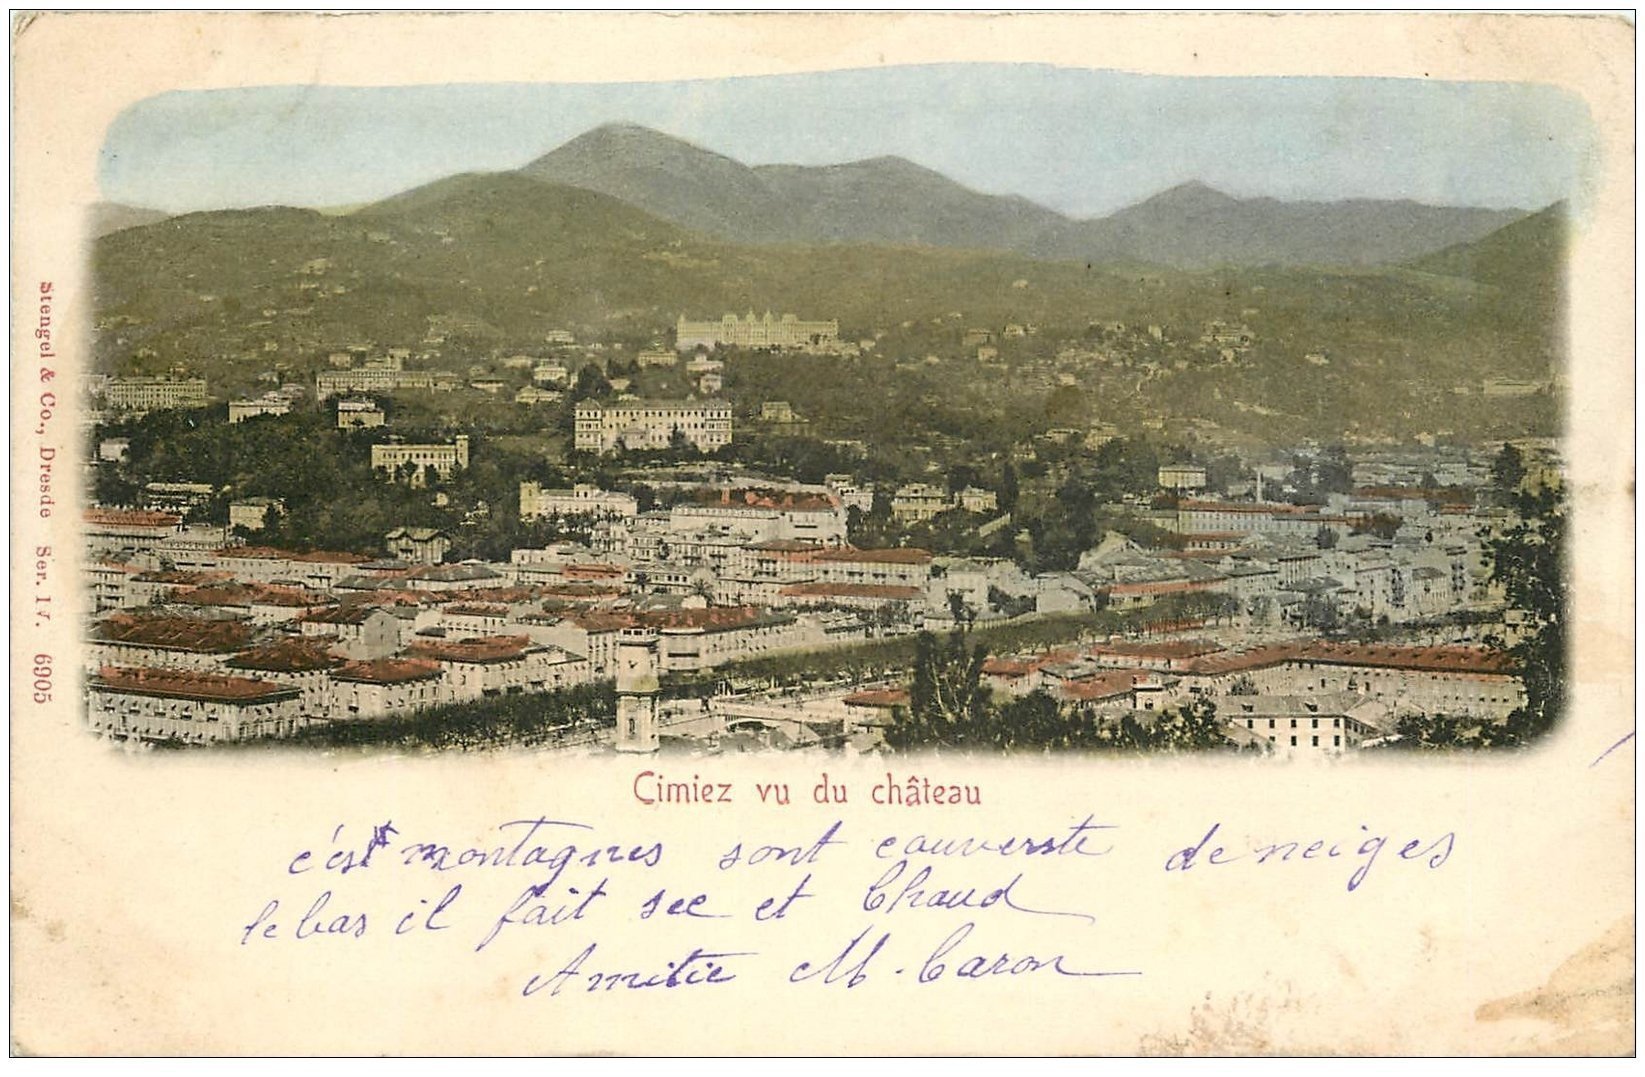 Stengel & Co., Dresde Ser. IV. 6905
Cimiez vu du château
c'est montagnes sont couverste de neiges
le bas il fait sec et Chaud
Amitie M. Caron